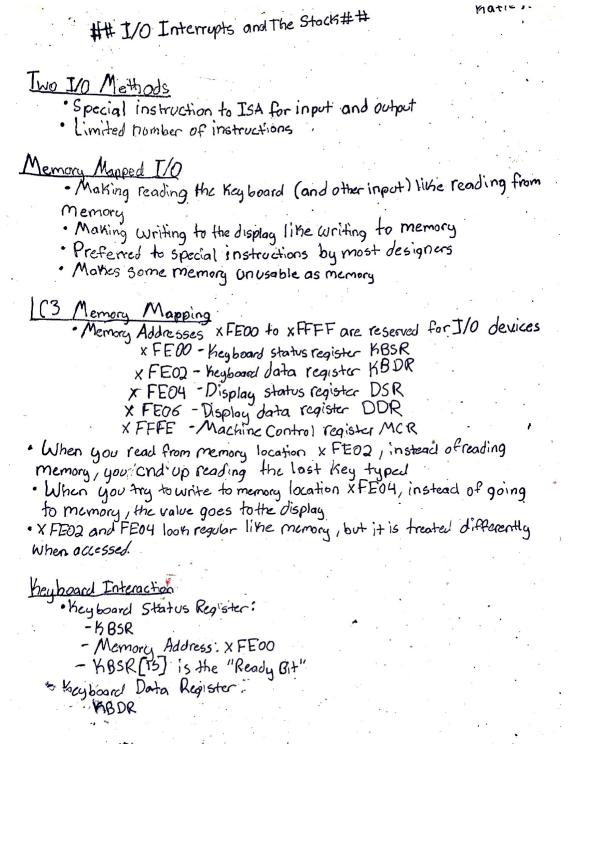 ## I/O Interrupts and The Stack##
Two I/O Methods
• Special instruction to ISA for input and output
• Limited number of instructions
Memory Mapped I/O
• Making reading the Keyboard (and other input) like reading from
memory
• Making writing to the display like writing to memory
• Preferred to special instructions by most designers
• Makes some memory unusable as memory
LC3 Memory Mapping
• Memory Addresses xFE00 to xFFFF are reserved for I/O devices
x FE00 - Keyboard status register KBSR
x FE02 - Keyboard data register KBDR
x FE04 - Display status register DSR
x FE06 - Display data register DDR
x FFFE - Machine Control register MCR
• When you read from memory location x FE02, instead of reading
memory, you end up reading the last key typed
• When you try to write to memory location xFE04, instead of going
to memory, the value goes to the display
• x FE02 and FE04 look regular like memory, but it is treated differently
when accessed.
Keyboard Interaction
• Keyboard Status Register:
- KBSR
- Memory Address: xFE00
- KBSR[15] is the "Ready Bit"
• Keyboard Data Register:
- KBDR